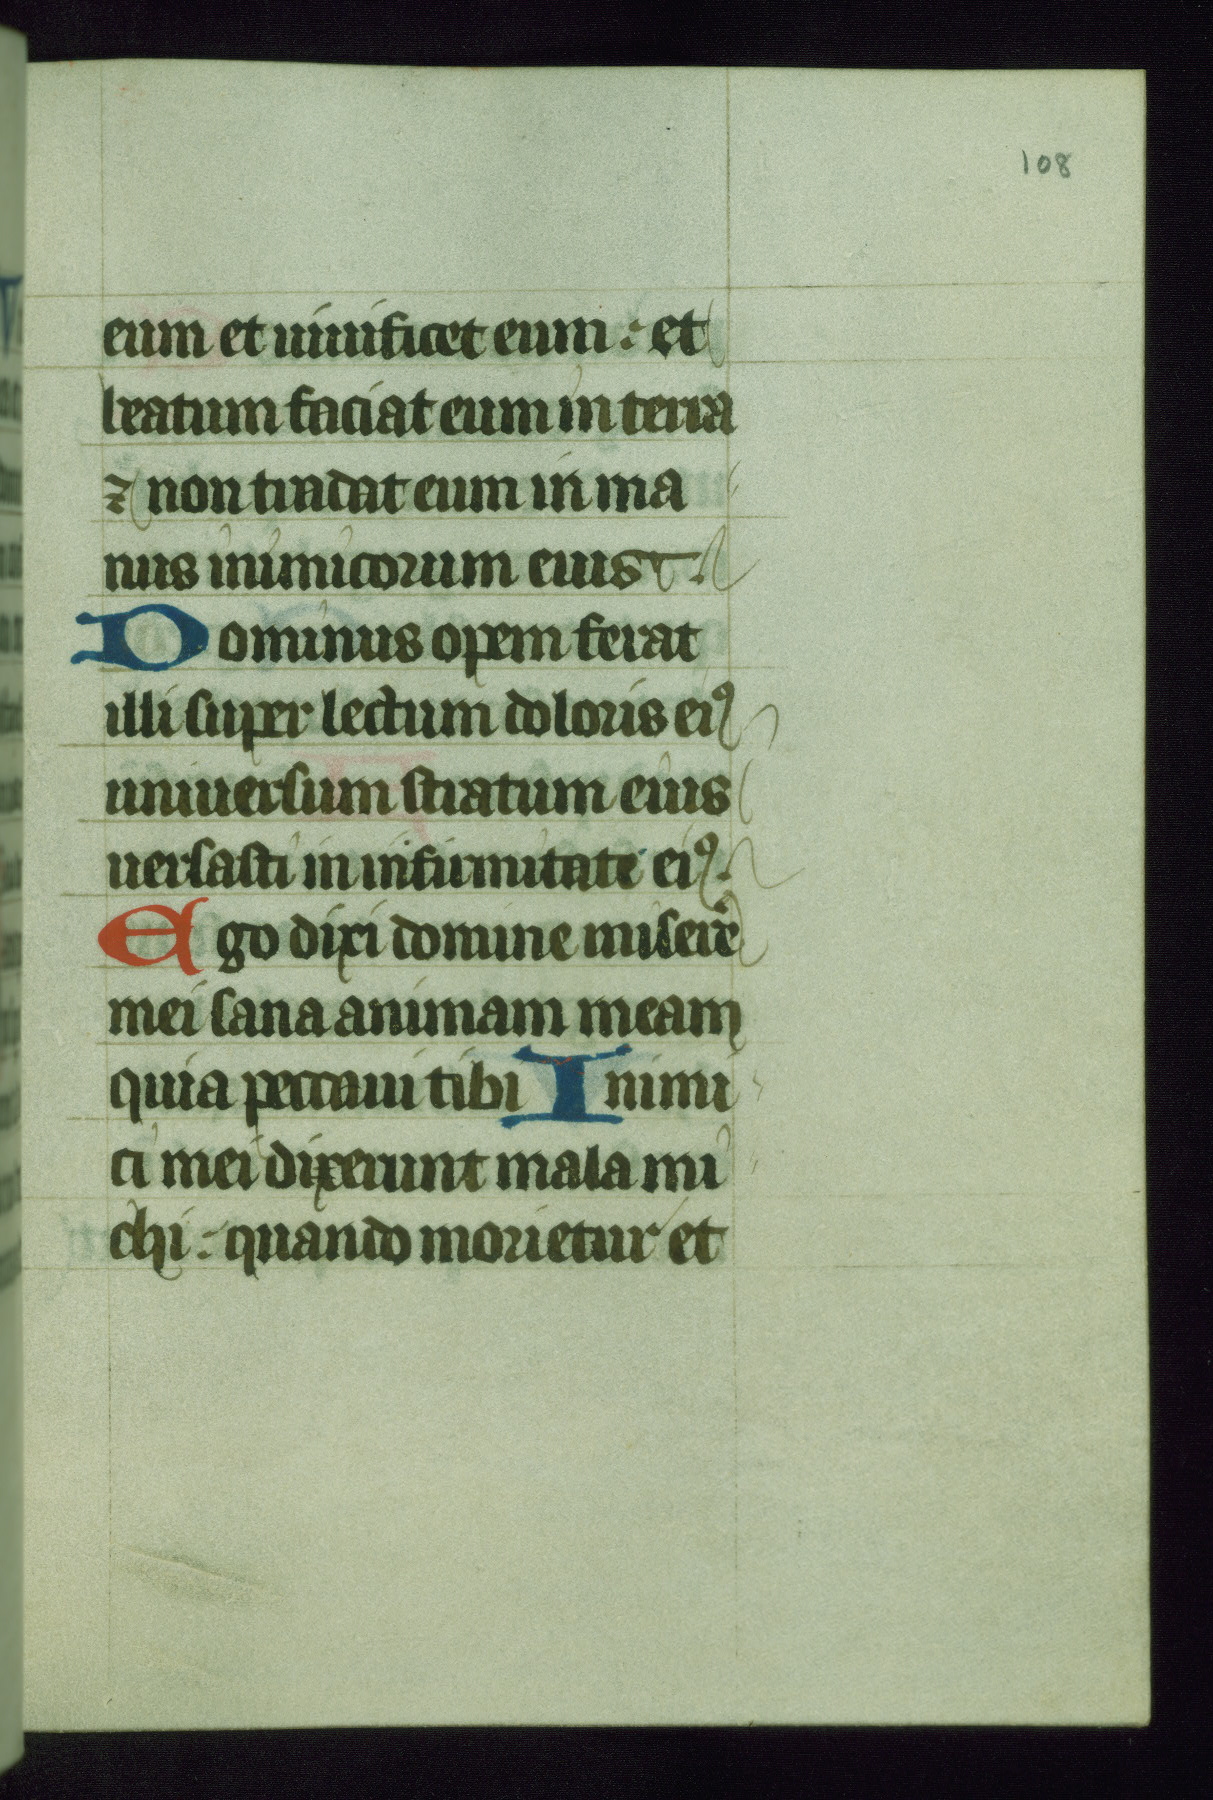 108
eum et uiuificet eum : et
beatum faciat eum in terra
⁊ non tradat eum in ma
nus inimicorum eius.
Dominus opem ferat
illi super lectum doloris eiꝰ
uniuersum stratum eius
uersasti in infirmitate eiꝰ.
Ego dixi domine miserē
mei sana animam meam
quia peccaui tibi Inimi
ci mei dixerunt mala mi
chi : quando morietur et